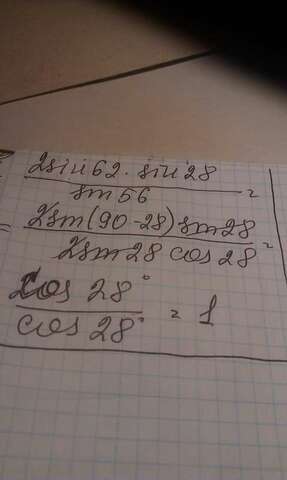 2sin 62 · sin 28
sin 56 =
= 2sin(90-28) sin 28
2sin 28 cos 28° =
cos 28°
cos 28° = 1